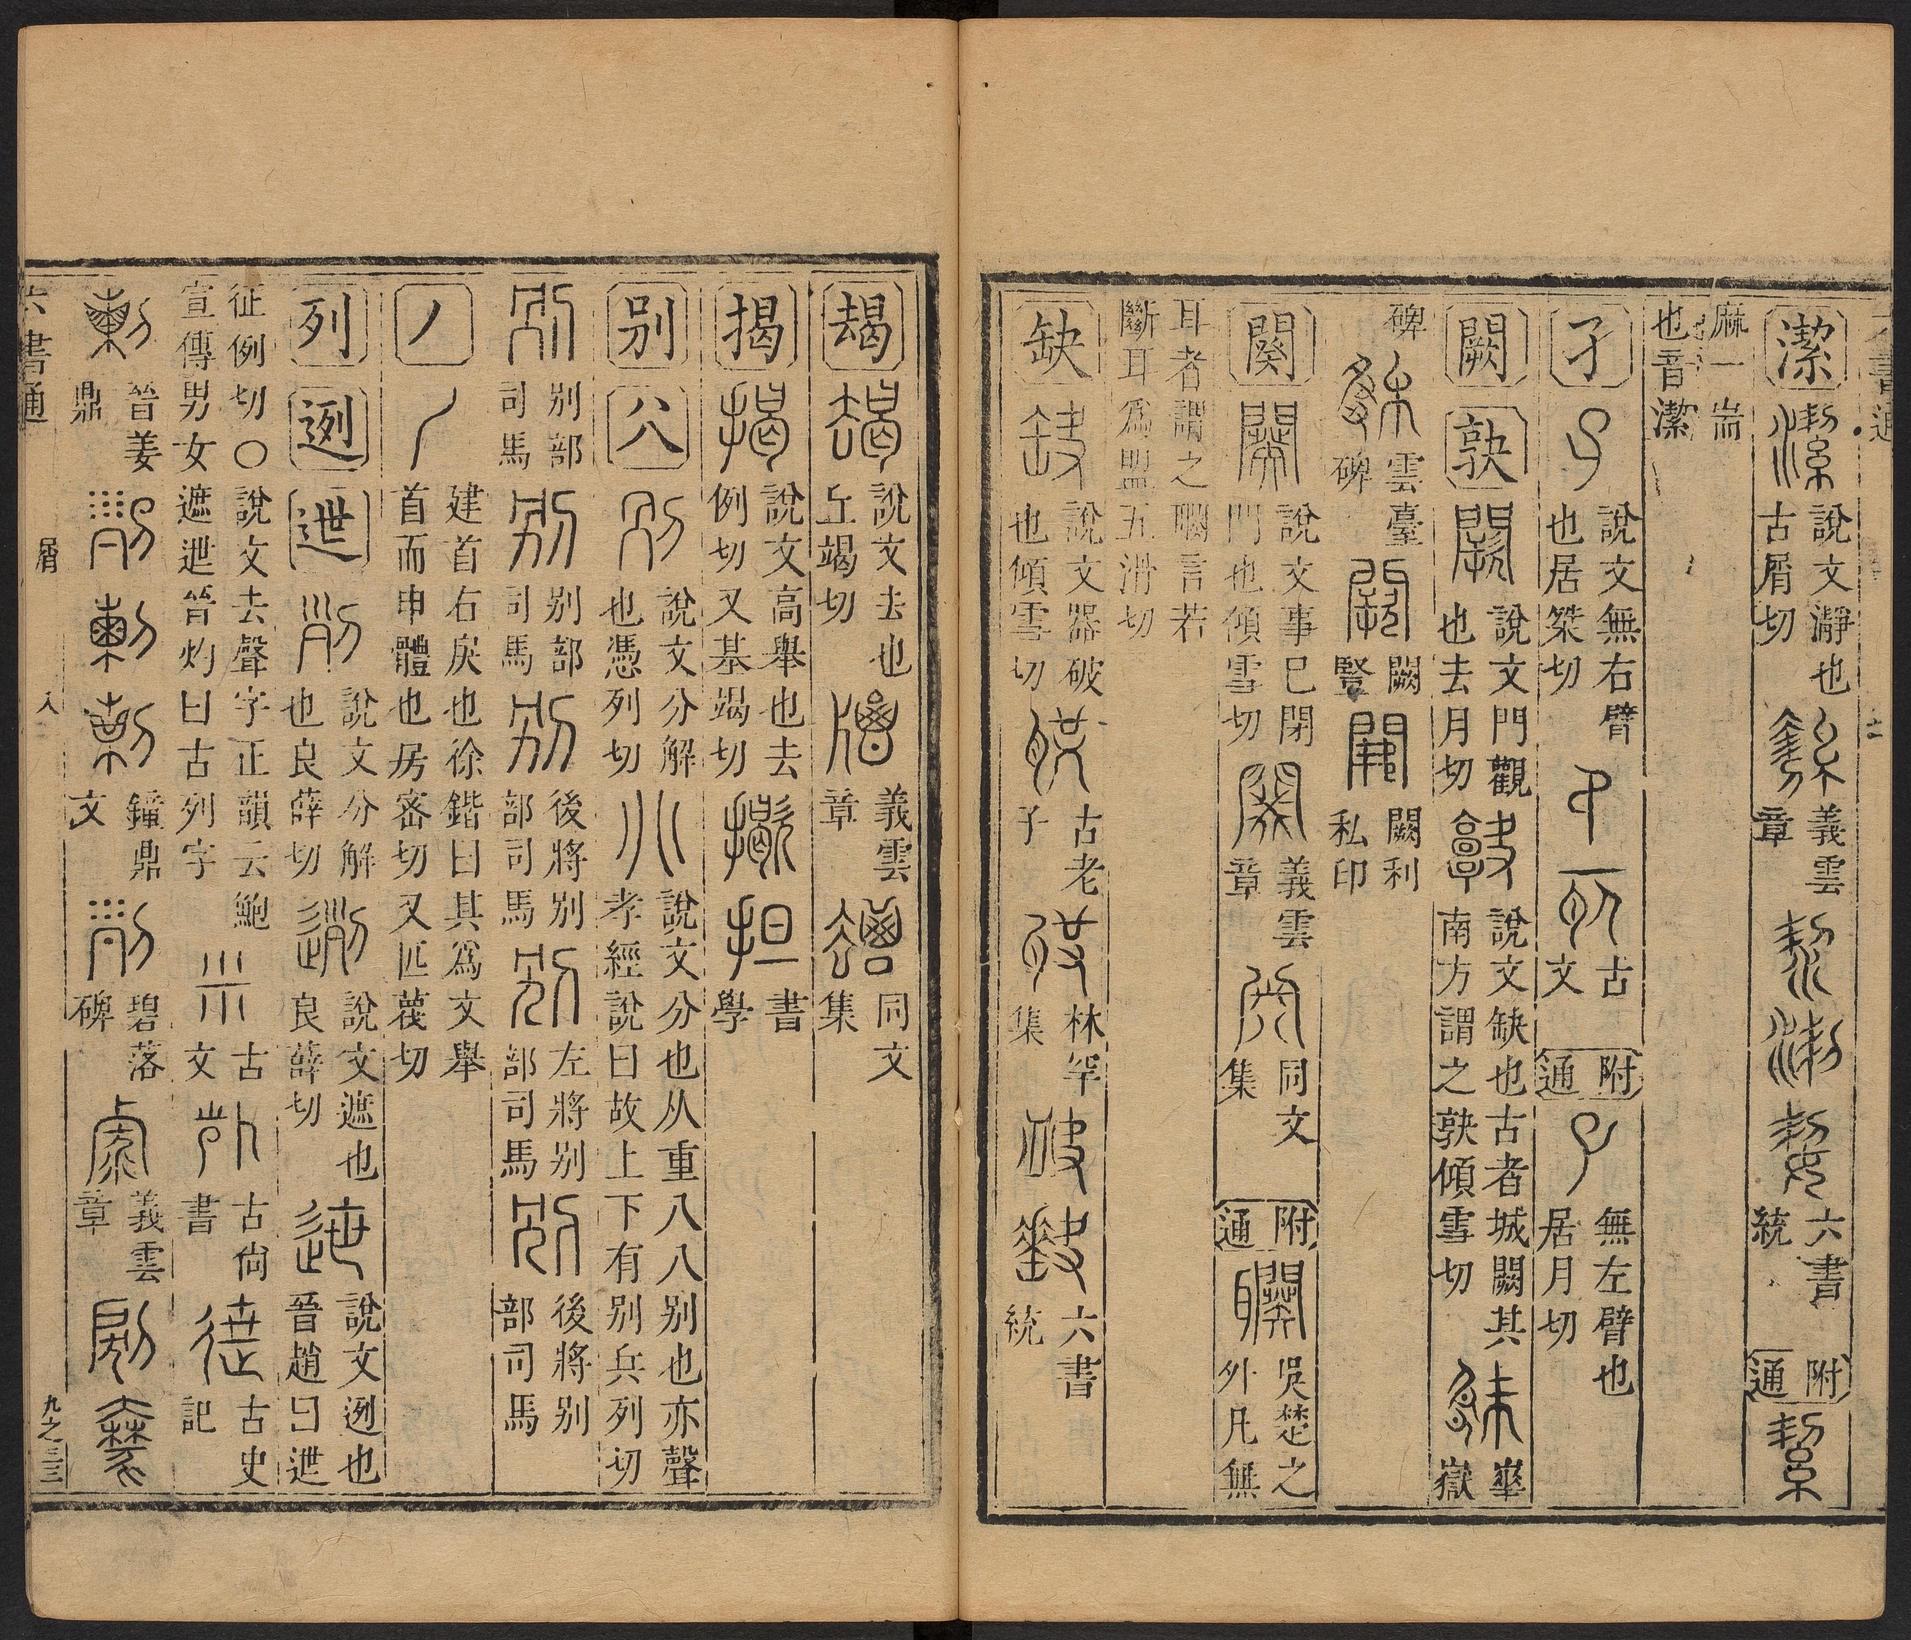 潔 說文瀞也古屑切 義雲章 六書統 附通
麻一耑也音潔
孑 說文無右臂也居桀切 古文 附通 無左臂也居月切
闕 𡙇 說文門觀也去月切 說文缺也古者城闕其南方謂之𡙇傾雪切 華嶽
碑 雲臺碑 闕豎 闕利私印
闋 說文事已閉門也傾雪切 義雲章 同文集 附通 吳楚之外凡無
耳者謂之䎳言若斷耳爲盟五滑切
缺 說文器破也傾雪切 古老子 林罕集 六書統
朅 說文去也丘竭切 義雲章 同文集
揭 說文高舉也去例切又基竭切 書學
别 八 說文分解也憑列切 說文分也从重八八别也亦聲孝經說曰故上下有别兵列切
别部司馬 别部司馬 後將别部司馬 左將别部司馬 後將别部司馬
丿 建首右戾也徐鍇曰其爲文舉首而申體也房密切又匹蔑切
列 迾 迣 說文分解也良薛切 說文遮也良薛切 說文迾也晉趙曰迣
征例切〇說文去聲字正韻云鮑宣傳男女遮迣晉灼曰古列字 古文 古尙書 古史記
晉姜鼎 鐘鼎文 碧落碑 義雲章
六書通 屑 入 九之三三